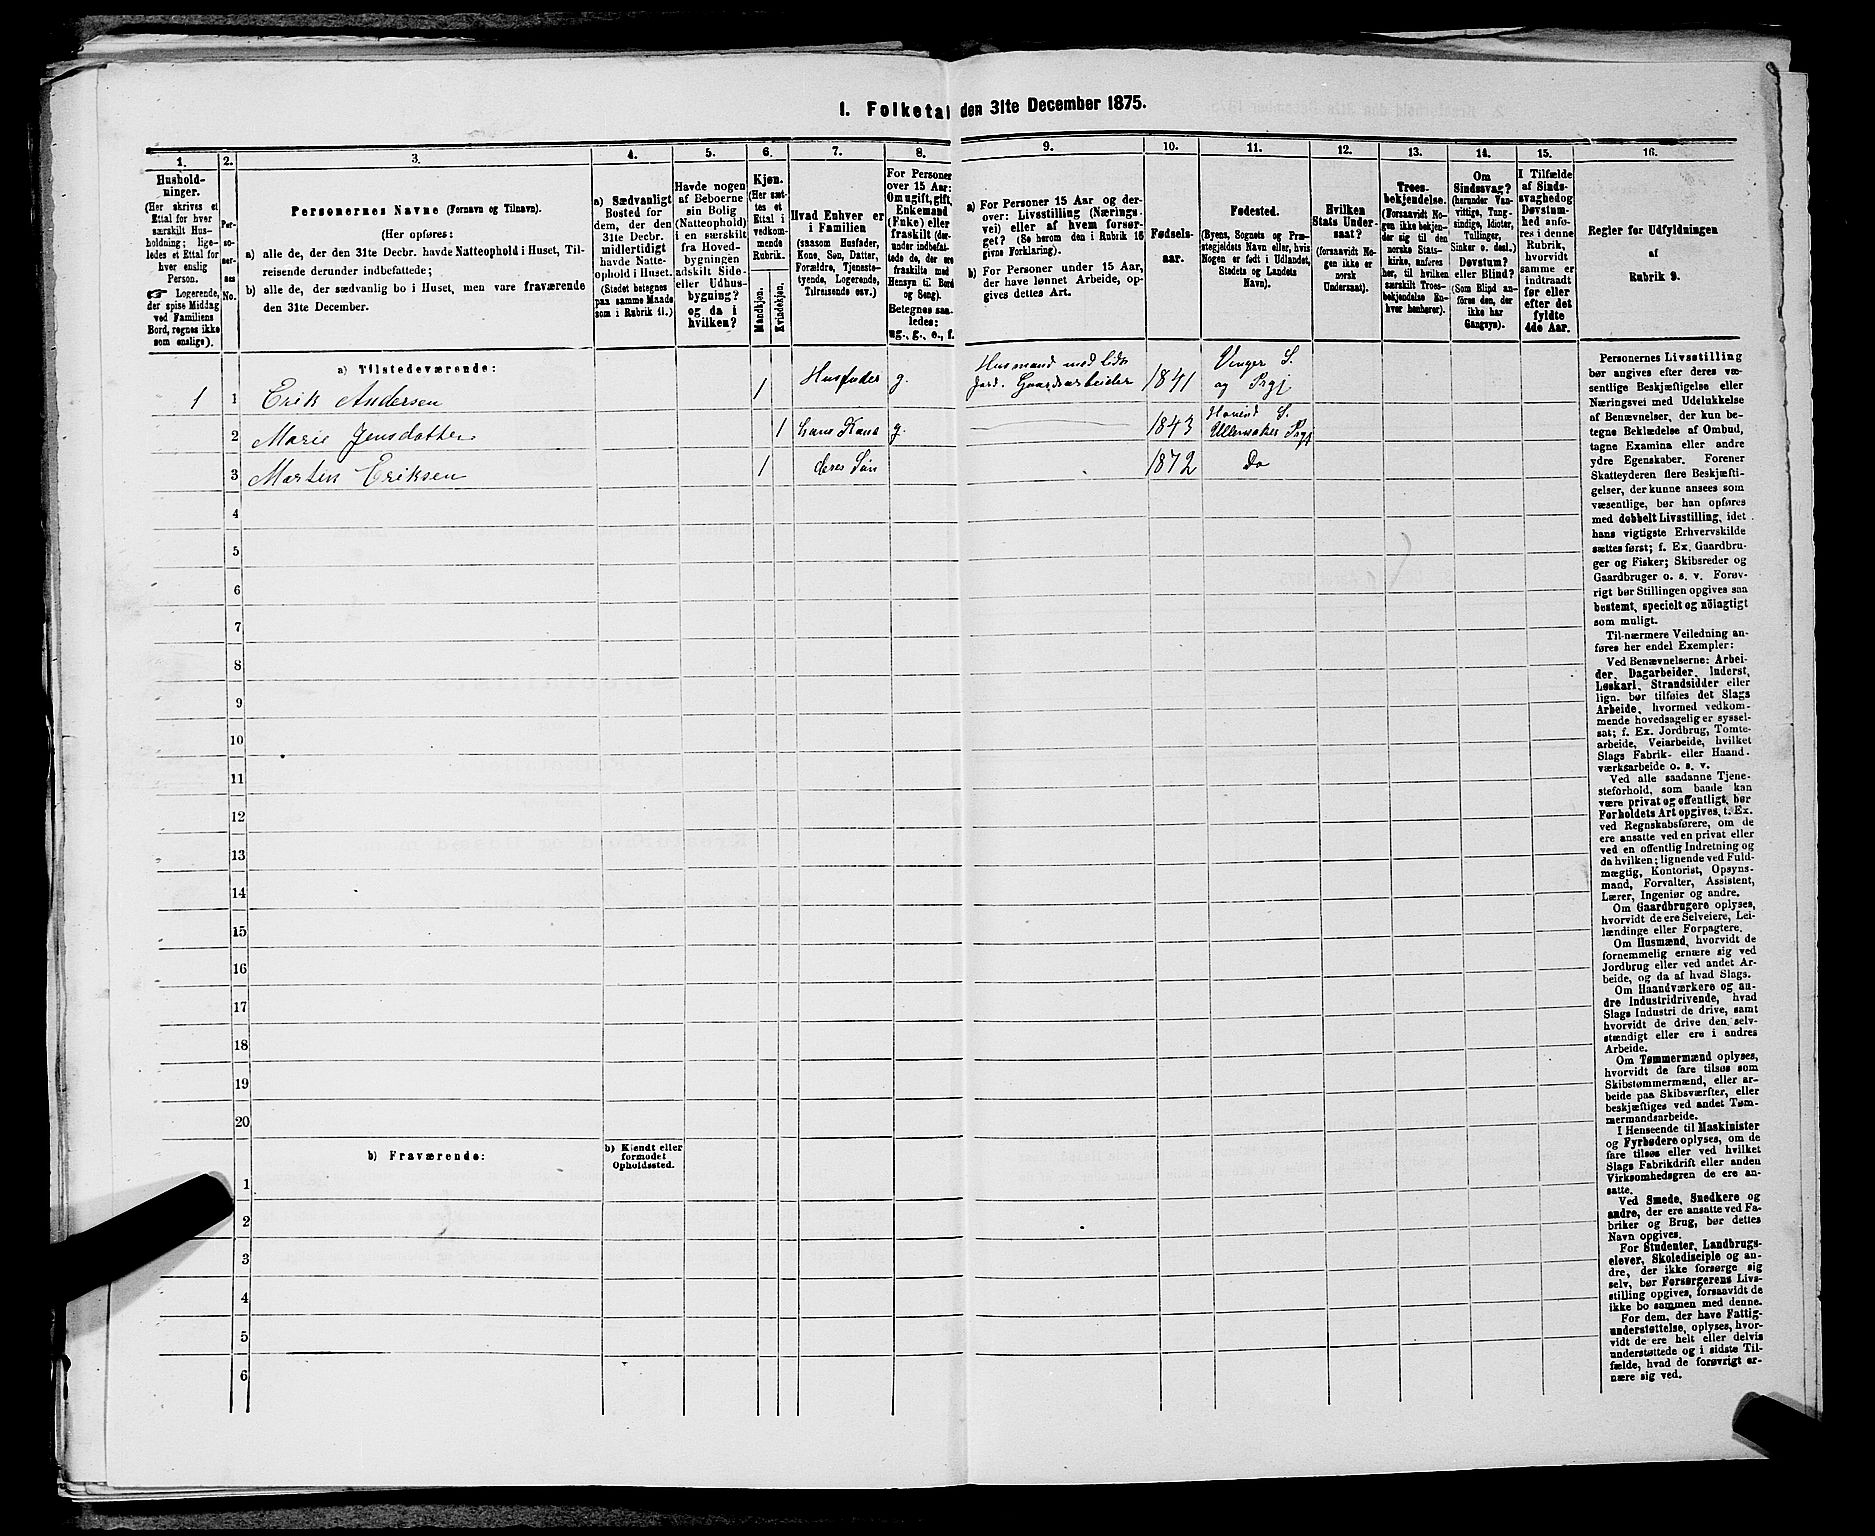 1. Folketal den 31te December 1875.
1.
2.
3.
4.
5.
6.
7.
8.
9.
10.
11.
12.
13.
14.
15.
16.
Hushold-
ninger.
(Her skrives et
Ettal for hver
særskilt Hus-
holdning; lige-
ledes et Ettal for
hver enslig
Person.
☞ Logerende,
der spise Middag
ved Familiens
Bord, regnes ikke
som enslige).
Per-
so-
ner-
nes
No.
Personernes Navne (Fornavn og Tilnavn).
(Her opføres:
a) alle de, der den 31te Decbr. havde Natteophold i Huset, Til-
reisende derunder indbefattede;
b) alle de, der sædvanlig bo i Huset, men vare fraværende
den 31te December.
a) Sædvanligt
Bosted for
dem, der den
31te Decbr.
midlertidigt
havde Natte-
ophold i Huset.
(Stedet betegnes
paa samme Maade
som i Rubrik 11.)
Havde nogen
af Beboerne
sin Bolig
(Natteophold)
i en særskilt
fra Hoved-
bygningen
adskilt Side-
eller Udhus-
bygning?
og da i
hvilken?
Kjøn.
(Her sæt-
tes et
Ettal i
vedkom-
mende
Rubrik.
Mandkjøn.
Kvindekjøn.
Hvad Enhver er
i Familien
(saasom Husfader,
Kone, Søn, Datter,
Forældre, Tjeneste-
tyende, Logerende,
Tilreisende osv.)
For Personer
over 15 Aar:
Om ugift, gift,
Enkemand
(Enke) eller
fraskilt (der-
under indbefat-
tede de, der ere
fraskilte med
Hensyn til Bord
og Seng).
Betegnes saa-
ledes:
ug., g., e., f.
a) For Personer 15 Aar og der-
over: Livsstilling (Nærings-
vei) eller af hvem forsør-
get? (Se herom den i Rubrik 16
givne Forklaring).
b) For Personer under 15 Aar,
der have lønnet Arbeide, op-
gives dettes Art.
Fødsels-
aar.
Fødested.
(Byens, Sognets og Præ-
stegjeldets Navn eller, hvis
Nogen er født i Udlandet,
Stedets og Landets
Navn).
Hvilken
Stats Under-
saat?
(forsaavidt No-
gen ikke er
norsk
Undersaat).
Troes-
bekjendelse.
(Forsaavidt No-
gen ikke bekjen-
der sig til den
norske Stats-
kirke, anføres
her, til hvilken
særskilt Troes-
bekjendelse En-
hver henhører).
Om
Sindssvag?
(herunder Van-
vittige, Tung-
sindige, Idioter,
Tullinger,
Sinker o. desl.)
Døvstum?
eller Blind?
(Som Blind an-
føres den, der
ikke har
Gangsyn).
I Tilfælde
af Sinds-
svaghed og
Døvstum-
hed anfø-
res i denne
Rubrik,
hvorvidt
samme er
indtraadt
før eller
efter det
fyldte
4de Aar.
Regler for Udfyldningen
af
Rubrik 9.
a) Tilstedeværende:
1 1 Erik Andersen 1 Husfader g. Husmand med lidt Jord. Gaardsarbeider 1841 Vinger S. og Prgj
2 Marie Jensdatter 1 hans Kone g. 1843 Hovind S. Ullensaker Prgj
3 Martin Eriksen 1 deres Søn 1872 Do
4
5
6
7
8
9
10
11
12
13
14
15
16
17
18
19
20
b) Fraværende:
b) Kjendt eller
formodet
Opholdssted.
1
2
3
4
5
6
Personernes Livsstilling
bør angives efter deres væ-
sentlige Beskjæftigelse eller
Næringsvei med Udelukkelse
af Benævnelser, der kun be-
tegne Beklædelse af Ombud,
tagne Examina eller andre
ydre Egenskaber. Forener
Skatteyderen flere Beskjæfti-
gelser, der kunne ansees som
væsentlige, bør han opføres
med dobbelt Livsstilling, idet
hans vigtigste Erhvervskilde
sættes først; f. Ex. Gaardbru-
ger og Fisker; Skibsreder og
Gaardbruger o. s. v. Forøv-
rigt bør Stillingen opgives saa
bestemt, specielt og nöiagtigt
som muligt.
Til nærmere Veiledning an-
føres her endel Exempler:
Ved Benævnelserne: Arbei-
der, Dagarbeider, Inderst,
Løskarl, Strandsidder eller
lign. bør tilføies det Slags
Arbeide, hvormed vedkom-
mende hovedsagelig er syssel-
sat; f. Ex. Jordbrug, Tomte-
arbeide, Veiarbeide, hvilket
Slags Fabrik- eller Haand-
værksarbeide o. s. v.
Ved alle saadanne Tjene-
steforhold, som baade kan
være privat og offentligt, bør
Forholdets Art opgives, t. Ex.
ved Regnskabsførere, om de
ere ansatte ved en privat eller
ved en offentlig Indretning og
da hvilken; lignende ved Fuld-
mægtig, Kontorist, Opsyns-
mand, Forvalter, Assistent,
Lærer, Ingeniør og andre.
Om Gaardbrugere oplyses,
hvorvidt de ere Selveiere, Lei-
lændinge eller Forpagtere.
Om Husmænd, hvorvidt de
fornemmelig ernære sig ved
Jordbrug eller ved andet Ar-
beide, og da af hvad Slags.
Om Haandværkere og an-
dre Industridrivende, hvad
Slags Industri de drive, samt
hvorvidt de drive den selv-
stændigt eller ere i andres
Arbeide.
Om Tømmermænd oplyses,
hvorvidt de fare tilsøs som
Skibstømmermænd, eller ar-
beide paa Skibsværfter, eller
beskjæftiges ved andet Tøm-
mermandsarbeide.
I Henseende til Maskinister
og Fyrbødere oplyses, om de
fare tilsøs eller ved hvilket
Slags Fabrikdrift eller anden
Virksomhedsgren de ere an-
satte.
Ved Smede, Snedkere og
andre, der ere ansatte ved Fa-
briker og Brug, bør dettes
Navn opgives.
For Studenter, Landbrugs-
elever, Skoledisciple og an-
dre, der ikke forsørge sig
selv, bør Forsørgerens Livs-
stilling opgives, forsaavidt de
ikke bo sammen med denne.
For dem, der have Fattig-
understøttelse, oplyses, hvor-
vidt de ere helt eller delvis
understøttede og i sidste Til-
fælde, hvad de forøvrigt er-
nære sig ved.